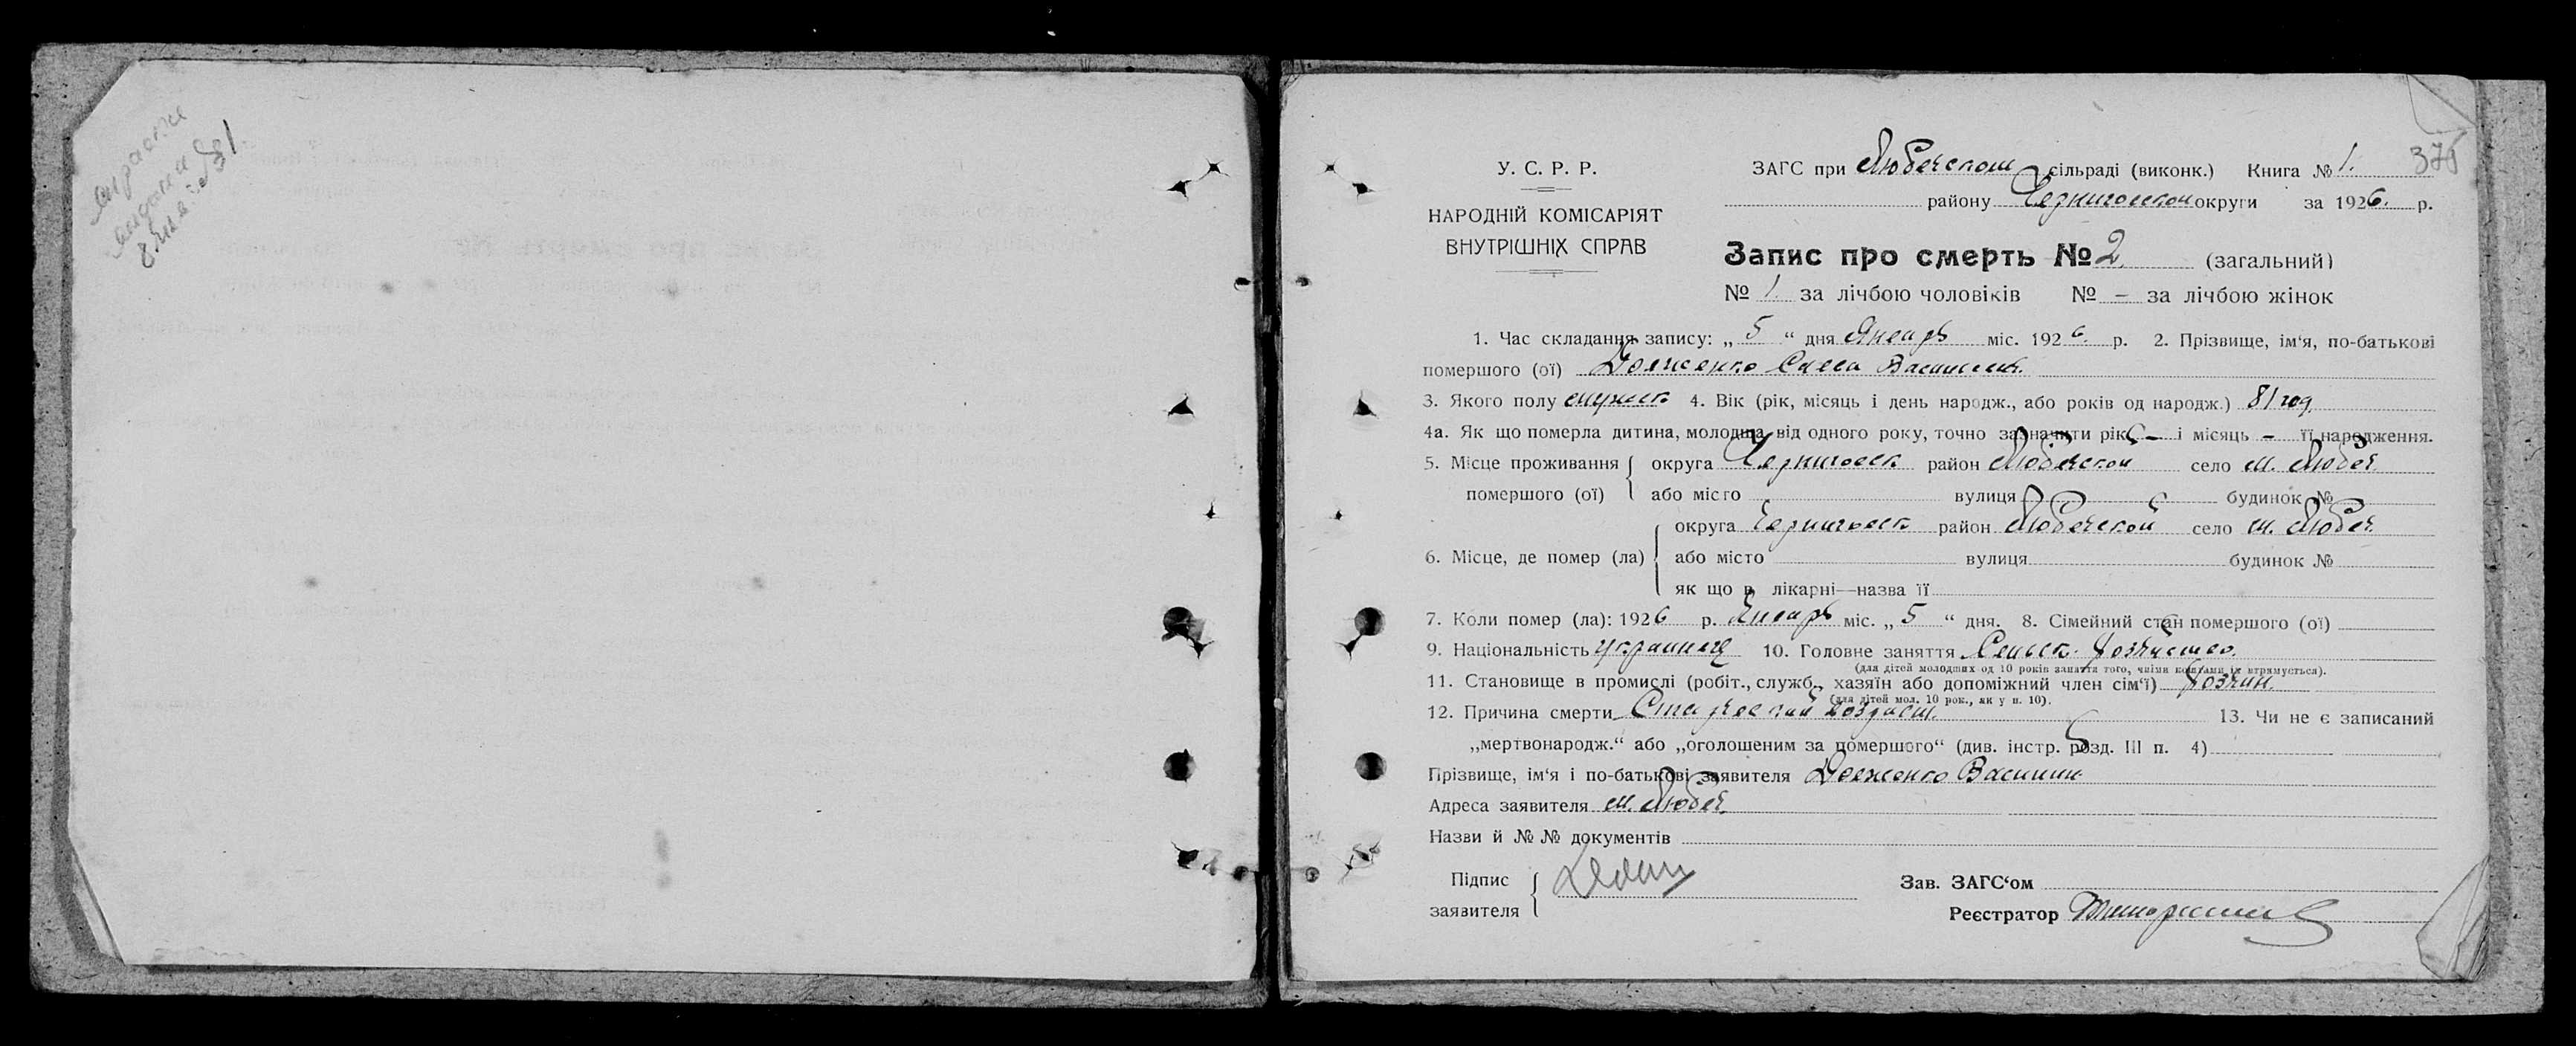 У. С. Р. Р.
НАРОДНІЙ КОМІСАРІЯТ
ВНУТРІШНІХ СПРАВ
ЗАГС при Любечском сільраді (виконк.) Книга № 1.
району Черниговской округи за 1926. р.
Запис про смерть № 2 (загальний)
№ 1. за лічбою чоловіків № – за лічбою жінок
1. Час складання запису: „ 5 “ дня Январь міс. 1926. р. 2. Прізвище, ім‘я, по-батькові
помершого (ої) Долженко Савва Васильев.
3. Якого полу мужск 4. Вік (рік, місяць і день народж., або років од народж.) 81 год
4а. Як що померла дитина, молодша від одного року, точно зазначити рік – і місяць – її народження.
5. Місце проживання округа Черниговск район Любечской село м. Любеч
помершого (ої) або місто вулиця будинок №
округа Черниговск район Любечской село м. Любеч
6. Місце, де помер (ла) або місто вулиця будинок №
як що в лікарні—назва її
7. Коли помер (ла): 1926 р. Январь міс. „ 5 “ дня. 8. Сімейний стан помершого (ої)
9. Національність украинец 10. Головне заняття Сельск. хозяйство.
(для дітей молодших од 10 років заняття того, чиїми коштами ік втримується).
11. Становище в промислі (робіт., служб., хазяїн або допоміжний член сім‘ї) хозяин.
(для дітей мол. 10 рок., як у п. 10).
12. Причина смерти Старческий возраст. 13. Чи не є записаний
„мертвонародж.“ або „оголошеним за помершого“ (див. інстр. розд. III п. 4)
Прізвище, ім‘я і по-батькові заявителя Долженко Василий
Адреса заявителя м. Любеч.
Назви й № № документів
Підпис
заявителя
Зав. ЗАГС‘ом
Реєстратор